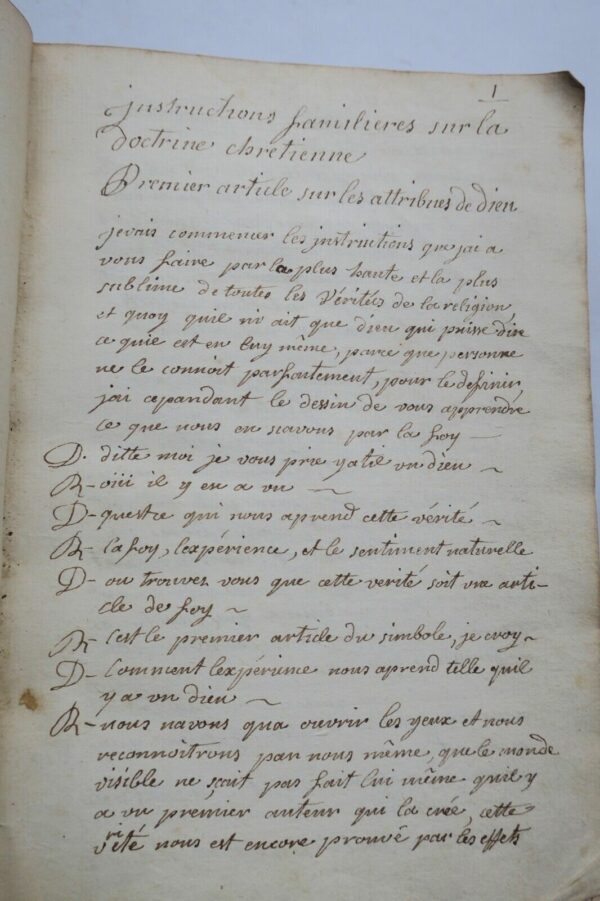 1
instructions familieres sur la
doctrine chretienne
Premier article sur les attribues de dieu
je vais commencer les instructions que jai a
vous faire par la plus haute et la plus
sublime de toutes les vérités de la religion
et quoy quil ni ait que dieu qui puisse dire
ce quil est en luy même, parce que personne
ne le connoit parfaitement, pour le definir,
jai cepandant le dessin de vous apprendre
ce que nous en scavons par la foy —
D. ditte moi je vous prie yatil un dieu ~
R- oiii il y en a un ~
D- questce qui nous aprend cette vérité ~
R- la foy, lexpérience, et le sentiment naturelle
D- ou trouvez vous que cette verité soit un arti-
cle de foy ~
R- cest le premier article du simbole, je croy ~
D- Comment lexpérience nous aprend telle quil
y a un dieu ~
R- nous navons qua ouvrir les yeux et nous
reconnoitrons par nous même, que le monde
visible ne sçait pas fait lui même quil y
a un premier auteur qui la crée, cette
vérité nous est encore prouvé par les effets